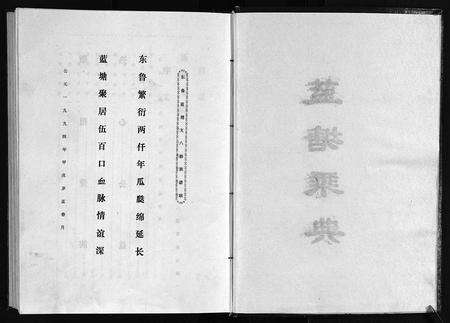 东鲁繁衍两仟年瓜瓞绵延长
蓝塘聚居伍百口血脉情谊深
公元一九九四年甲戌岁孟春月
蓝塘聚典